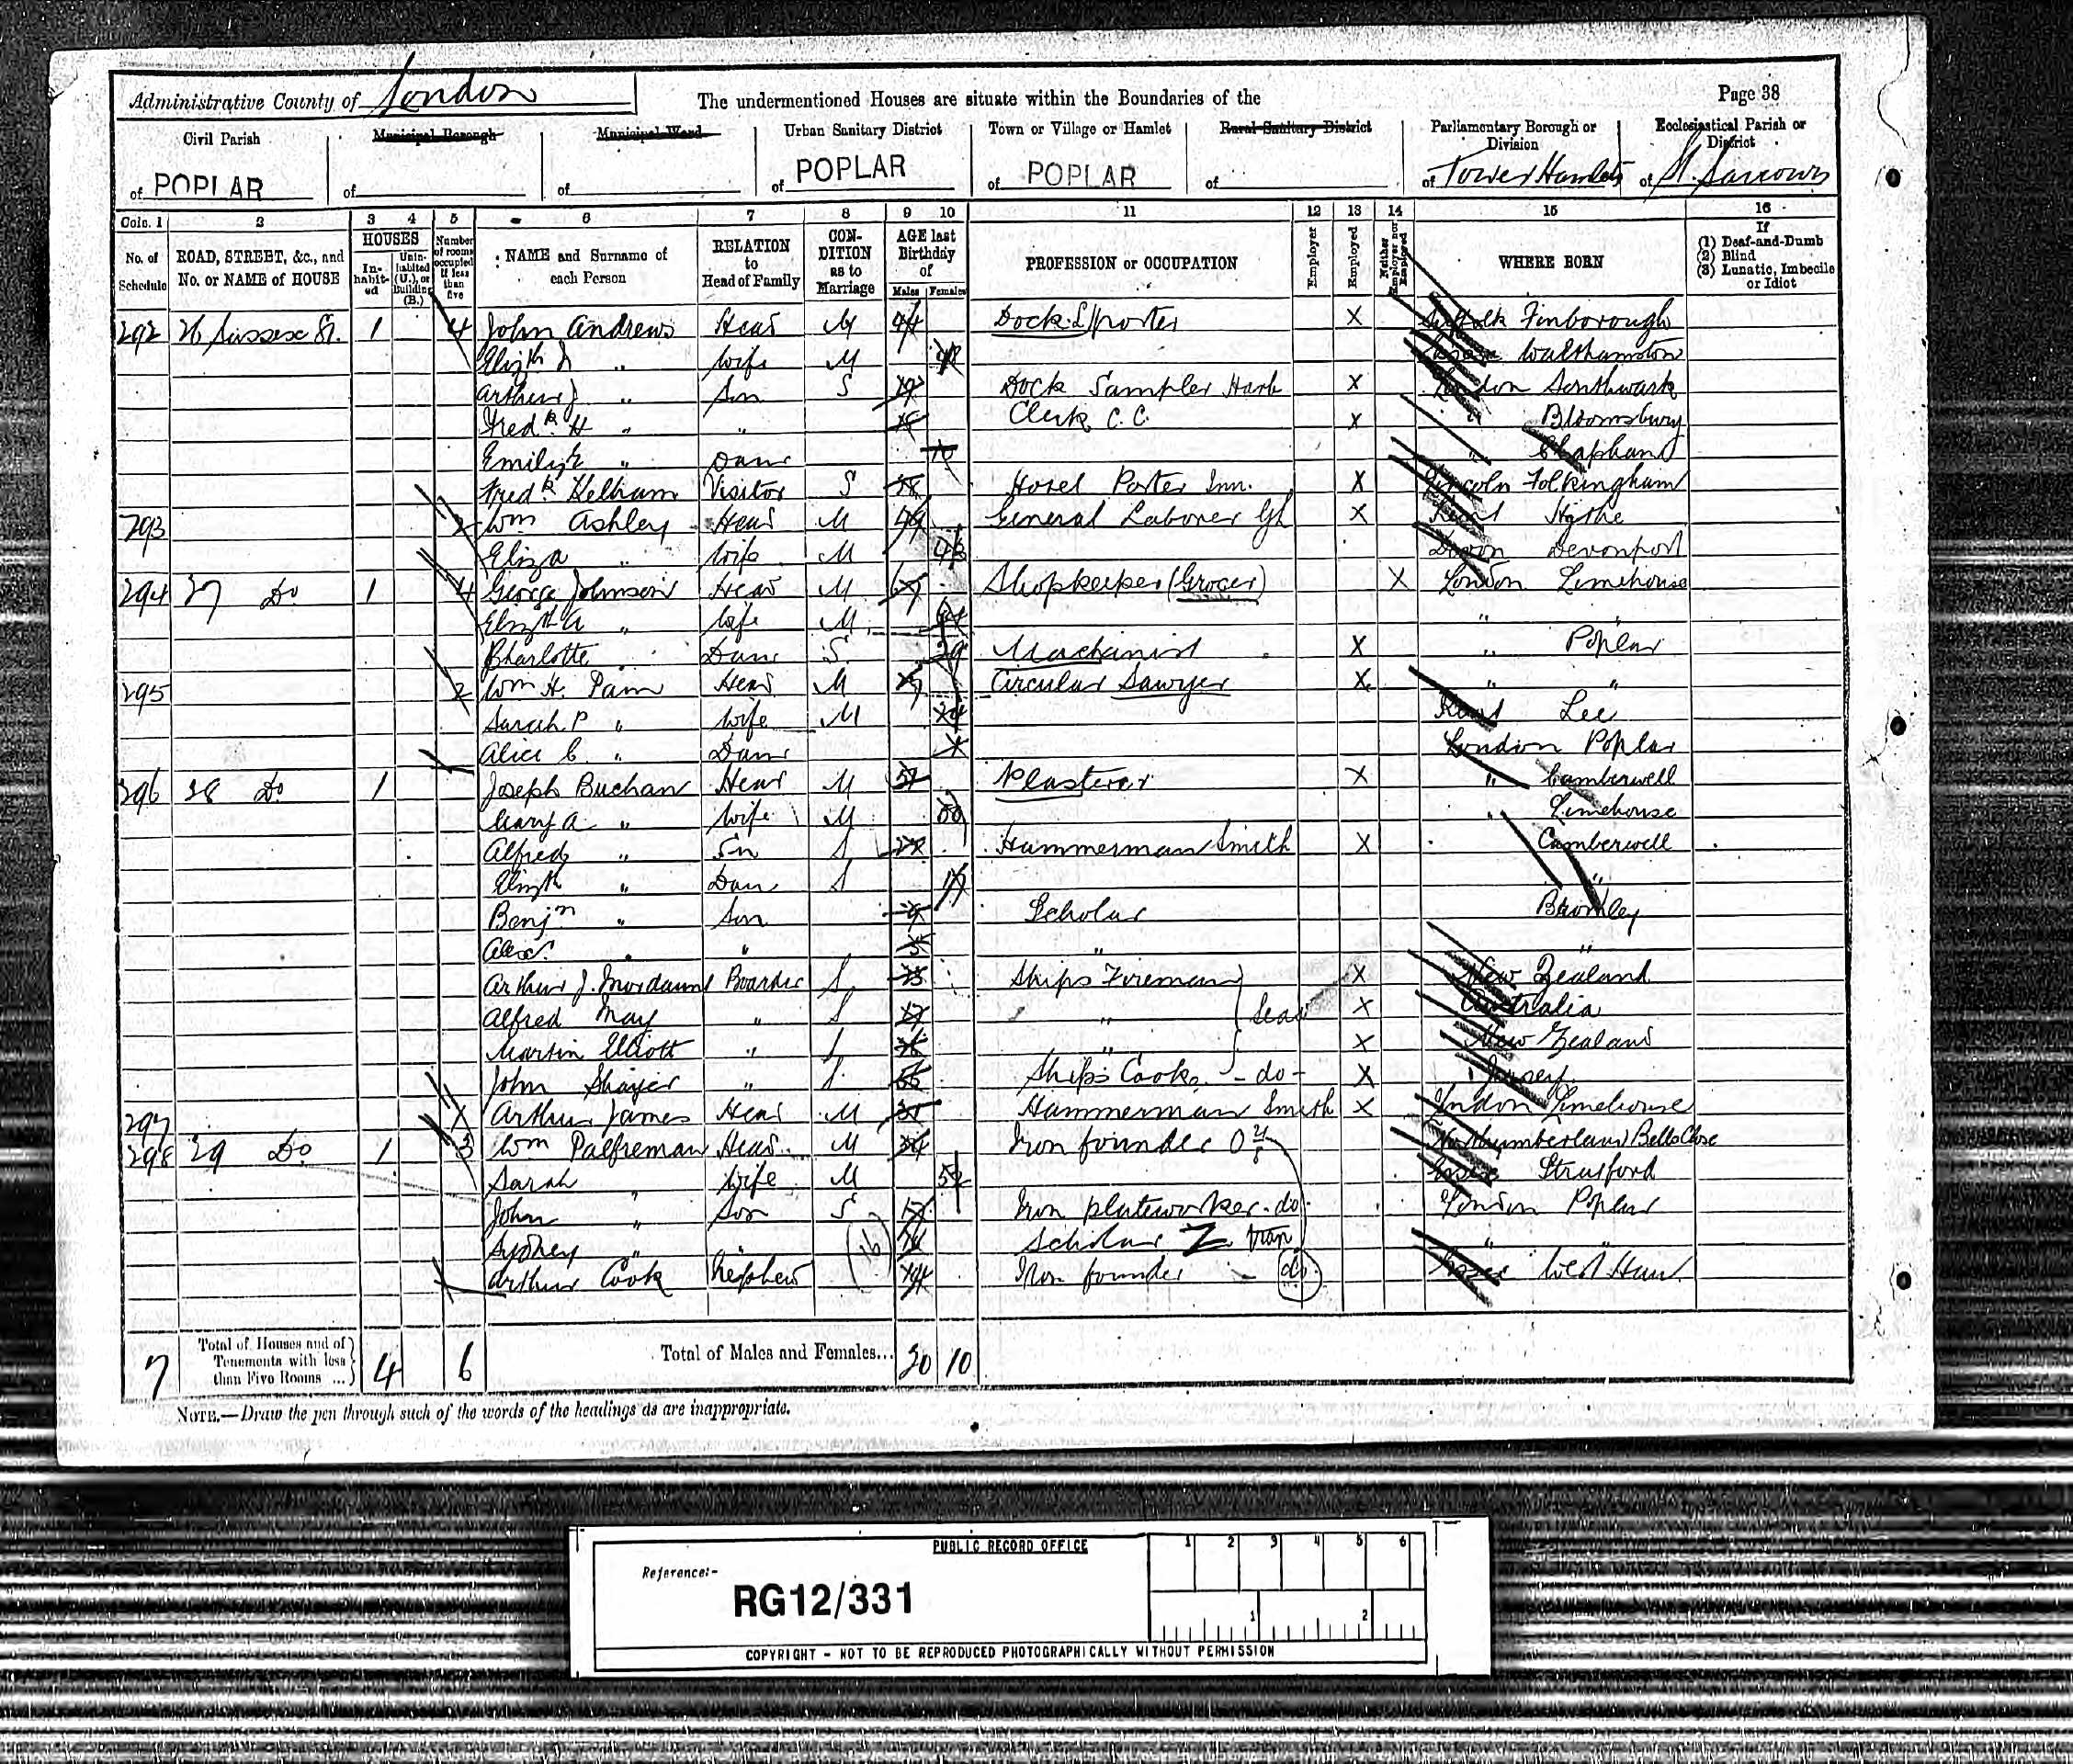 Administrative County of London
The undermentioned Houses are situate within the Boundaries of the
Page 38
Civil Parish of POPLAR
Municipal Borough of
Municipal Ward of
Urban Sanitary District of POPLAR
Town or Village or Hamlet of POPLAR
Rural Sanitary District of
Parliamentary Borough or Division of Tower Hamlets
Ecclesiastical Parish or District of St.
Cols. 1 2 3 4 5 6 7 8 9 10 11 12 13 14 15 16
No. of Schedule
ROAD, STREET, &c., and No. or NAME of HOUSE
HOUSES
Inhabited
Uninhabited (U.), or Building (B.)
Number of rooms occupied if less than five
NAME and Surname of each Person
RELATION to Head of Family
CONDITION as to Marriage
AGE last Birthday of
Males Females
PROFESSION or OCCUPATION
Employer
Employed
Neither Employer nor Employed
WHERE BORN
If
(1) Deaf-and-Dumb
(2) Blind
(3) Lunatic, Imbecile or Idiot
292 26 Sussex St. 1 4 John Andrews Head M 44 Dock Porter X Suffolk Finborough
Elizth J " Wife M Essex Walthamstow
Arthur J " Son S Dock Sampler X London Southwark
Fredk H " " Clerk C.C. X " Bloomsbury
Emily E " Daur 10 " Clapham
Fredk Kelham Visitor S Hotel Porter Inn. X Lincoln Folkingham
293 2 Wm Ashley Head M General Laborer X Kent Hythe
Eliza " Wife M 43 Devon Devonport
294 27 Do 1 4 George Johnson Head M Shopkeeper (Grocer) X London Limehouse
Elizth A " Wife M " "
Charlotte Daur S 29 Machinist X " Poplar
295 2 Wm H. Pain Head M Circular Sawyer X " "
Sarah P " Wife M 24 Kent Lee
Alice C. " Daur London Poplar
296 28 Do 1 Joseph Buchan Head M Plasterer X " Camberwell
Mary A " Wife M 50 " Limehouse
Alfred " Son S Hammerman Smith X Camberwell
Elizth " Daur S "
Benjn " Son Scholar Bromley
Alexr. " " "
Arthur J. Mordaunt Boarder S Ships Fireman X New Zealand
Alfred May " S " Sea X Australia
Martin Elliott " S " X New Zealand
John Shayer " S Ships Cook - do - X Jersey
297 Arthur James Head M Hammerman Smith X London Limehouse
298 29 Do 1 3 Wm Palfreman Head M 54 Iron founder Northumberland Bells Close
Sarah " Wife M 52 Essex Stratford
John " Son S Iron plateworker. do London Poplar
Sydney " " Scholar " "
Arthur Cook Nephew Iron founder - do Essex West Ham
7 Total of Houses and of Tenements with less than Five Rooms ... 4 6 Total of Males and Females... 20 10
NOTE.—Draw the pen through such of the words of the headings as are inappropriate.
PUBLIC RECORD OFFICE
1 2 3 4 5 6
Reference:-
RG12/331
1 2
COPYRIGHT - NOT TO BE REPRODUCED PHOTOGRAPHICALLY WITHOUT PERMISSION